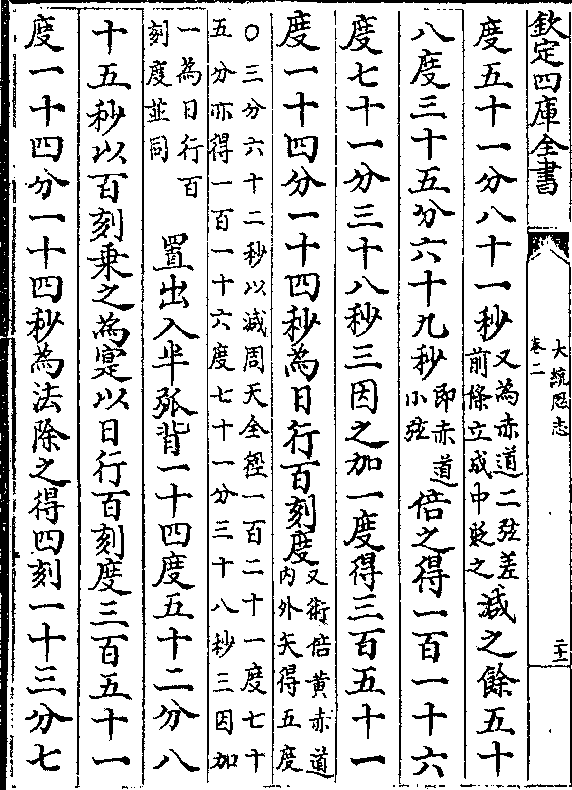 欽定四庫全書
大統厯志
卷二
度五十一分八十一秒又為赤道二弦差前條立成中貶之減之餘五十
八度三十五分六十九秒即赤道小弦倍之得一百一十六
度七十一分三十八秒三因之加一度得三百五十一
度一十四分一十四秒為日行百刻度又術倍黃赤道内外矢得五度
〇三分六十二秒以減周天全徑一百二十一度七十
五分亦得一百一十六度七十一分三十八秒三因加
一為日行百刻度並同　置出入半弧背一十四度五十二分八
十五秒以百刻乗之為寔以日行百刻度三百五十一
度一十四分一十四秒為法除之得四刻一十三分七